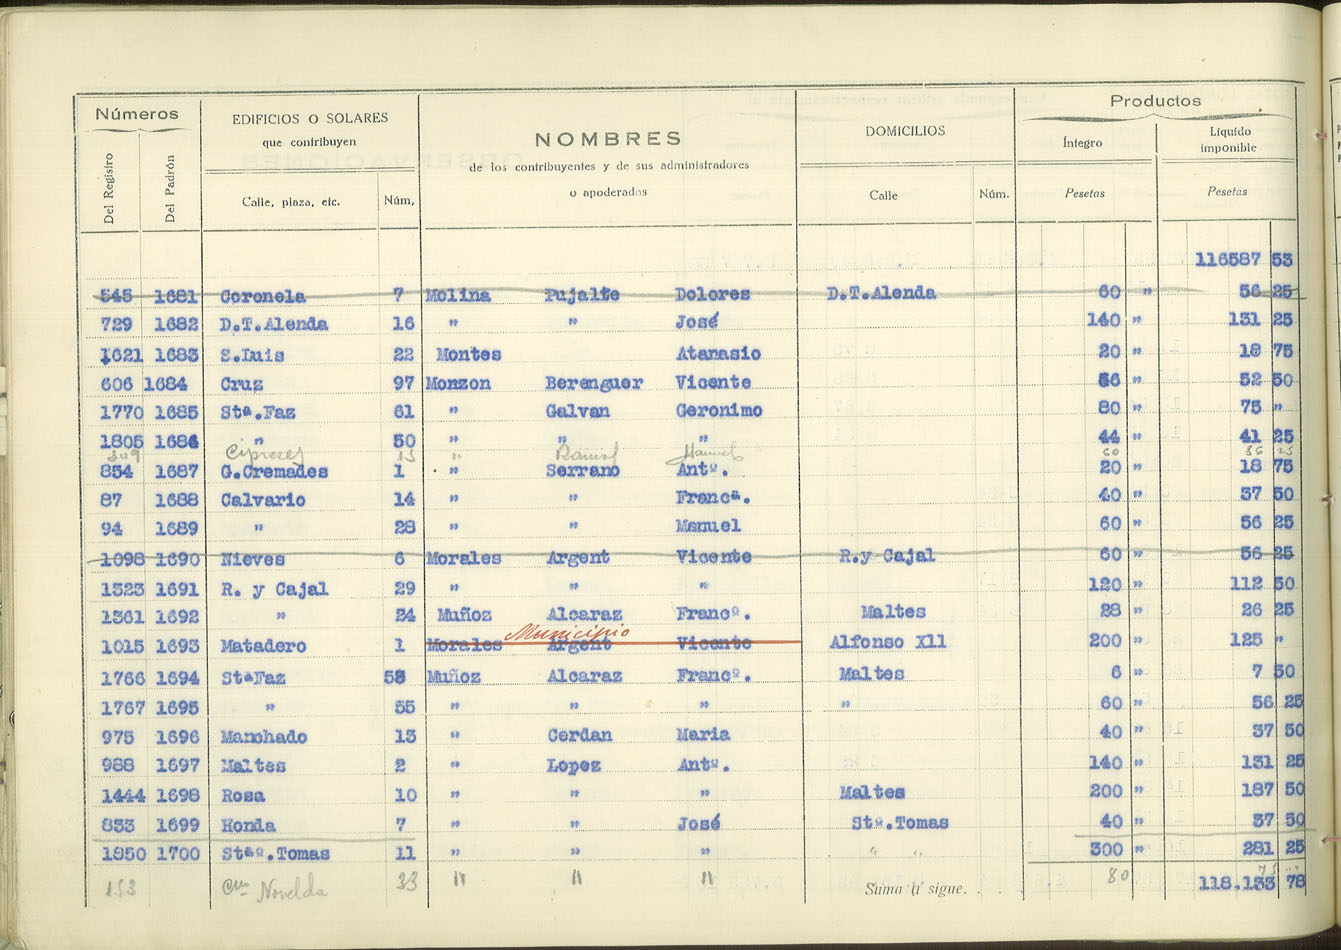 Números
EDIFICIOS O SOLARES
que contribuyen
NOMBRES
de los contribuyentes y de sus administradores
o apoderados
DOMICILIOS
Productos
Íntegro
Líquido
imponible
Del Registro Del Padrón Calle, plaza, etc. Núm, Calle Núm. Pesetas Pesetas
116587 53
545 1681 Coronela 7 Molina Pujalte Dolores D.T.Alenda 60 " 56 25
729 1682 D.T.Alenda 16 " " José 140 " 131 25
1621 1683 S.Luis 22 Montes Atanasio 20 " 18 75
606 1684 Cruz 97 Monzon Berenguer Vicente 56 " 52 50
1770 1685 Stª.Faz 61 " Galvan Geronimo 80 " 75 "
1805 1686 " 50 " " " 44 " 41 25
309 Cipreses 13 " Ramos Manuel 60 56 25
854 1687 G.Cremades 1 " Serrano Antº. 20 " 18 75
87 1688 Calvario 14 " " Francª. 40 " 37 50
94 1689 " 28 " " Manuel 60 " 56 25
1098 1690 Nieves 6 Morales Argent Vicente R.y Cajal 60 " 56 25
1323 1691 R. y Cajal 29 " " " 120 " 112 50
1361 1692 " 24 Muñoz Alcaraz Francº. Maltes 28 " 26 25
Municipio
1015 1693 Matadero 1 Morales Argent Vicente Alfonso Xll 200 " 125 "
1766 1694 StªFaz 53 Muñoz Alcaraz Francº. Maltes 6 " 7 50
1767 1695 " 55 " " " " 60 " 56 25
975 1696 Manchado 13 " Cerdan Maria 40 " 37 50
988 1697 Maltes 2 " Lopez Antº. 140 " 131 25
1444 1698 Rosa 10 " " " Maltes 200 " 187 50
833 1699 Honda 7 " " José Stº.Tomas 40 " 37 50
1850 1700 Stº.Tomas 11 " " " " " 300 " 281 25
153 Novelda 33 " " " 80
Suma y sigue. . . 118.133 78